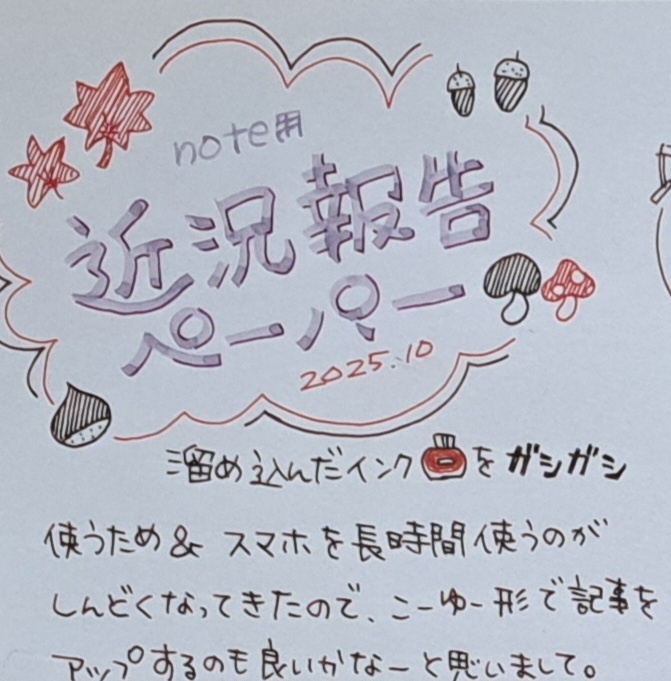 note用
近況報告
ペーパー
2025.10
溜め込んだインクをガシガシ
使うため & スマホを長時間使うのが
しんどくなってきたので、こーゆー形で記事を
アップするのも良いかなーと思いまして。